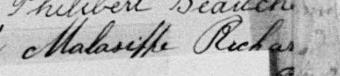 Philibert Beauche
Malasiffe Richar